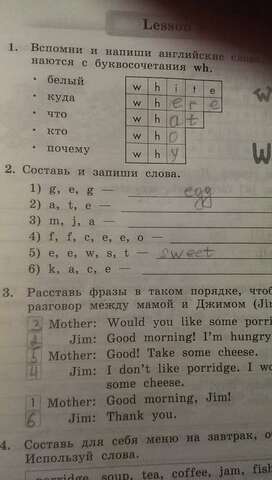 Lesson
1. Вспомни и напиши английские слова,
наются с буквосочетания wh.
• белый white
• куда where
• что what
• кто who
• почему why
2. Составь и запиши слова.
1) g, e, g — egg
2) a, t, e —
3) m, j, a —
4) f, f, c, e, e, o —
5) e, e, w, s, t — sweet
6) k, a, c, e —
3. Расставь фразы в таком порядке, чтоб
разговор между мамой и Джимом (Jim
3 Mother: Would you like some porri
2 Jim: Good morning! I'm hungry
5 Mother: Good! Take some cheese.
4 Jim: I don't like porridge. I wo
some cheese.
1 Mother: Good morning, Jim!
6 Jim: Thank you.
4. Составь для себя меню на завтрак, о
Используй слова.
porridge, soup, tea, coffee, jam, fish